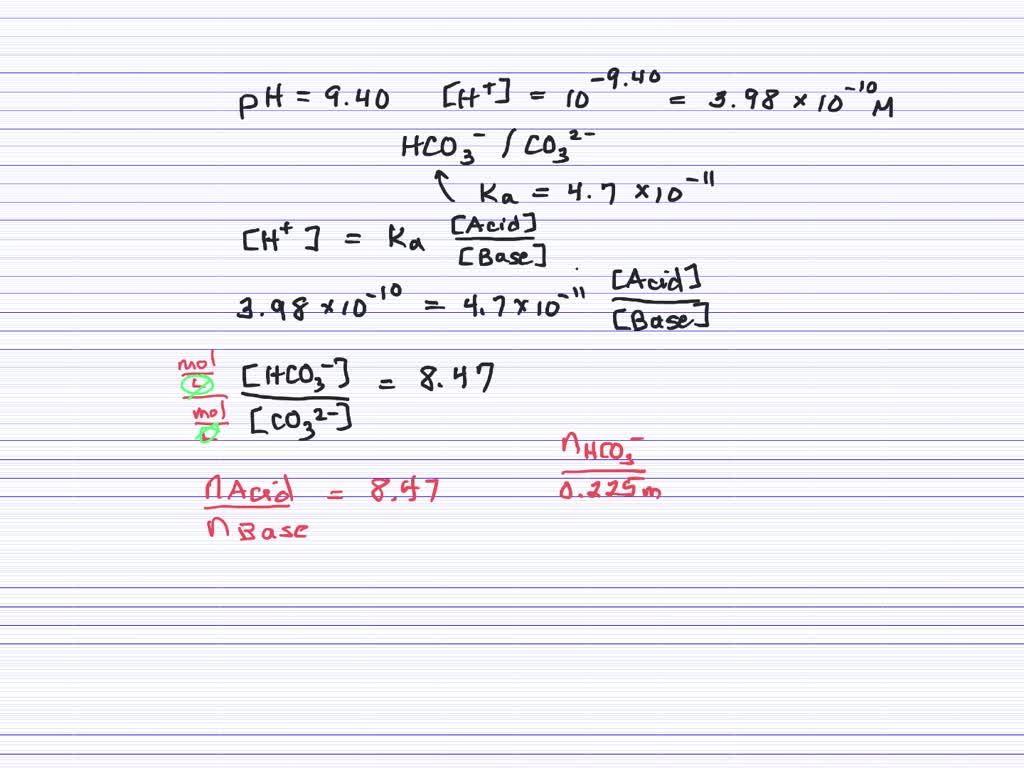 pH = 9.40 [H⁺] = 10⁻⁹·⁴⁰ = 3.98 × 10⁻¹⁰ M
HCO₃⁻ / CO₃²⁻
Ka = 4.7 × 10⁻¹¹
[H⁺] = Ka [Acid] / [Base]
3.98 × 10⁻¹⁰ = 4.7 × 10⁻¹¹ [Acid] / [Base]
mol / L / mol / L [HCO₃⁻] / [CO₃²⁻] = 8.47
n Acid / n Base = 8.47 n HCO₃⁻ / 0.225 m